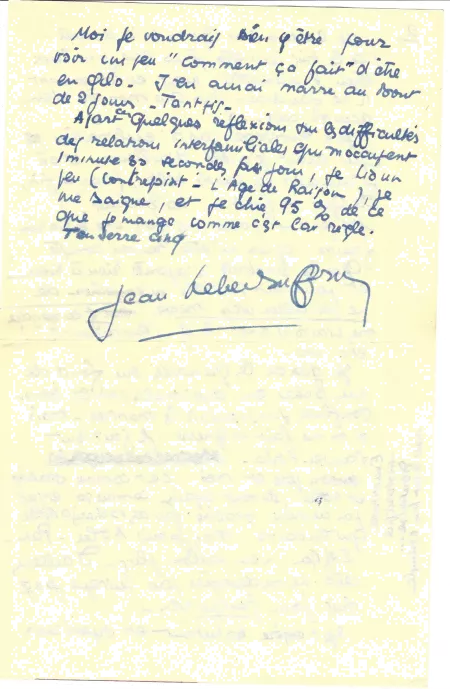 Moi je voudrais bien y être pour
voir un peu "comment ça fait" d'être
en philo. J'en aurai marre au bout
de 2 jours - Tant pis -
A part ça quelques reflexions sur les difficultés
des relations interfamiliales qui m'occupent
1 minute 30 secondes par jour, je lis un
peu (Contrepoint - L'Age de Raison), je
me baigne, et je chie 95 % de ce
que je mange comme c'est la règle.
Ton
Jean